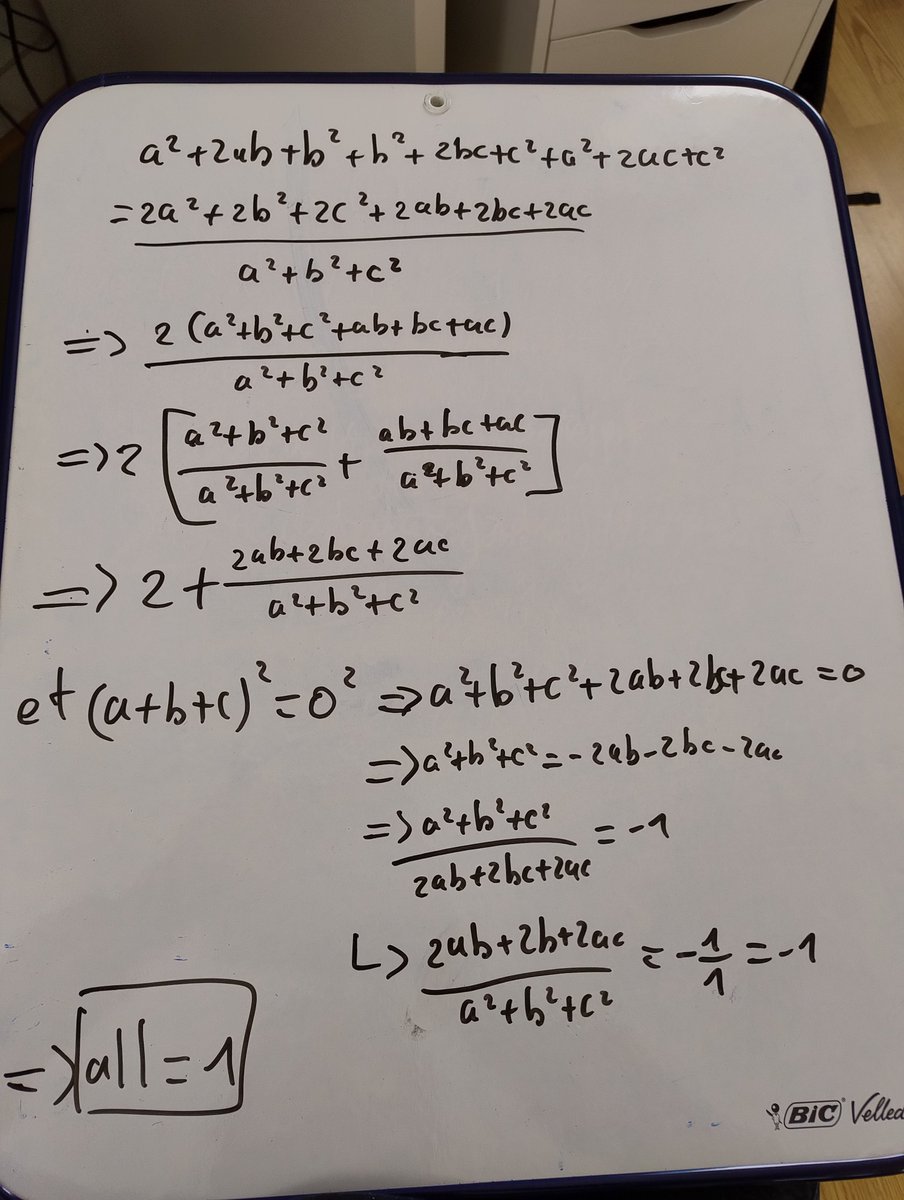 a²+2ab+b²+b²+2bc+c²+a²+2ac+c²
=2a²+2b²+2c²+2ab+2bc+2ac
a²+b²+c²
=> 2(a²+b²+c²+ab+bc+ac)
a²+b²+c²
=>2[a²+b²+c²/a²+b²+c² + ab+bc+ac/a²+b²+c²]
=> 2+ 2ab+2bc+2ac/a²+b²+c²
et (a+b+c)²=0² => a²+b²+c²+2ab+2bc+2ac=0
=>a²+b²+c²=-2ab-2bc-2ac
=> a²+b²+c²/2ab+2bc+2ac = -1
L> 2ab+2b+2ac/a²+b²+c² = -1/1 = -1
=> all = 1
BIC Velled